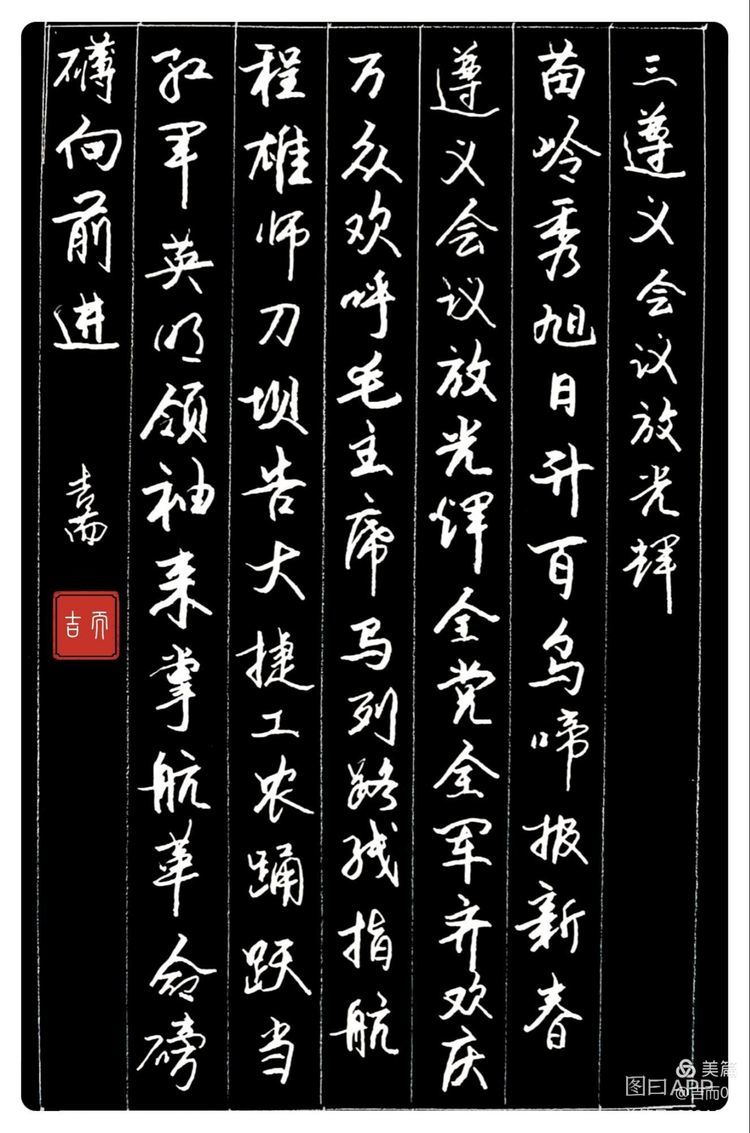 三遵义会议放光辉
苗岭秀旭日升百鸟啼报新春
遵义会议放光辉全党全军齐欢庆
万众欢呼毛主席马列路线指航
程雄师刀坝告大捷工农踊跃当
红军英明领袖来掌航革命磅
礴向前进
吉而
美篇
图曰APP